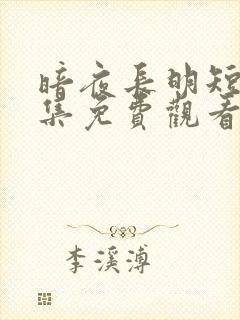 暗夜長明短
集免費觀看
李溪溥